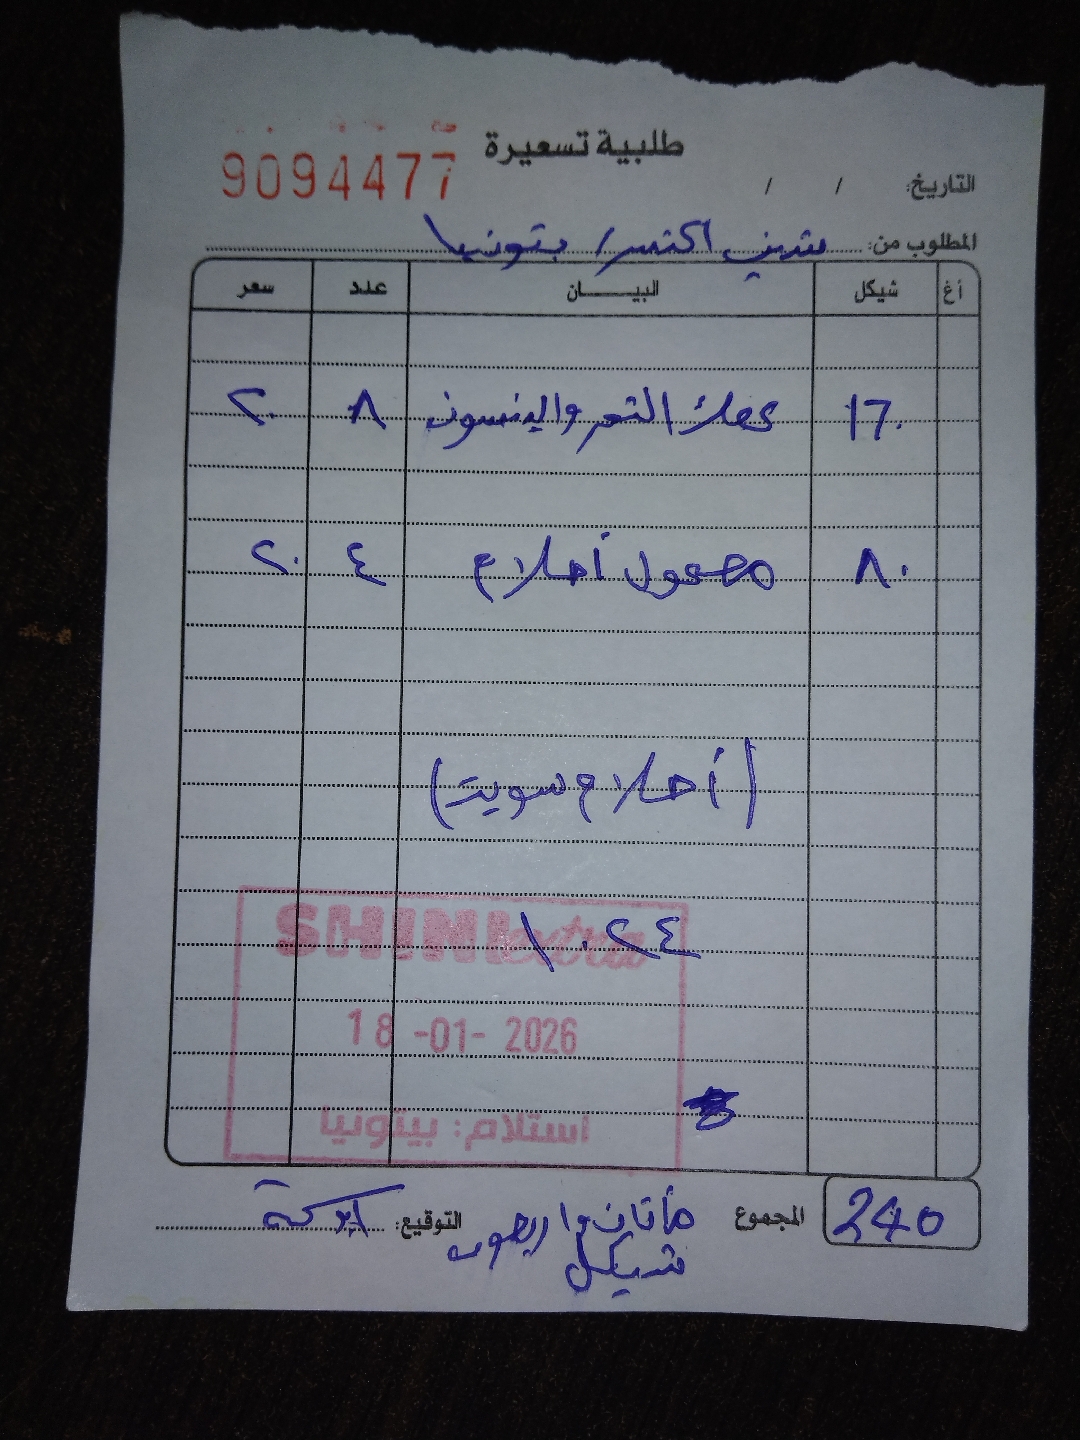 طلبية تسعيرة
9094477
التاريخ: / /
المطلوب من: شيني اكسترا / بتونيا
أغ شيكل البيـــــان عدد سعر
١٦٠ كعك التمر والينسون ٨ ٢٠
٨٠ معمول أحلام ٤ ٢٠
(أحلام سويت)
١٠٢٤
SHINI extra
18 -01- 2026
استلام: بيتونيا
المجموع 240 مأتان واربعون شيكل
التوقيع: